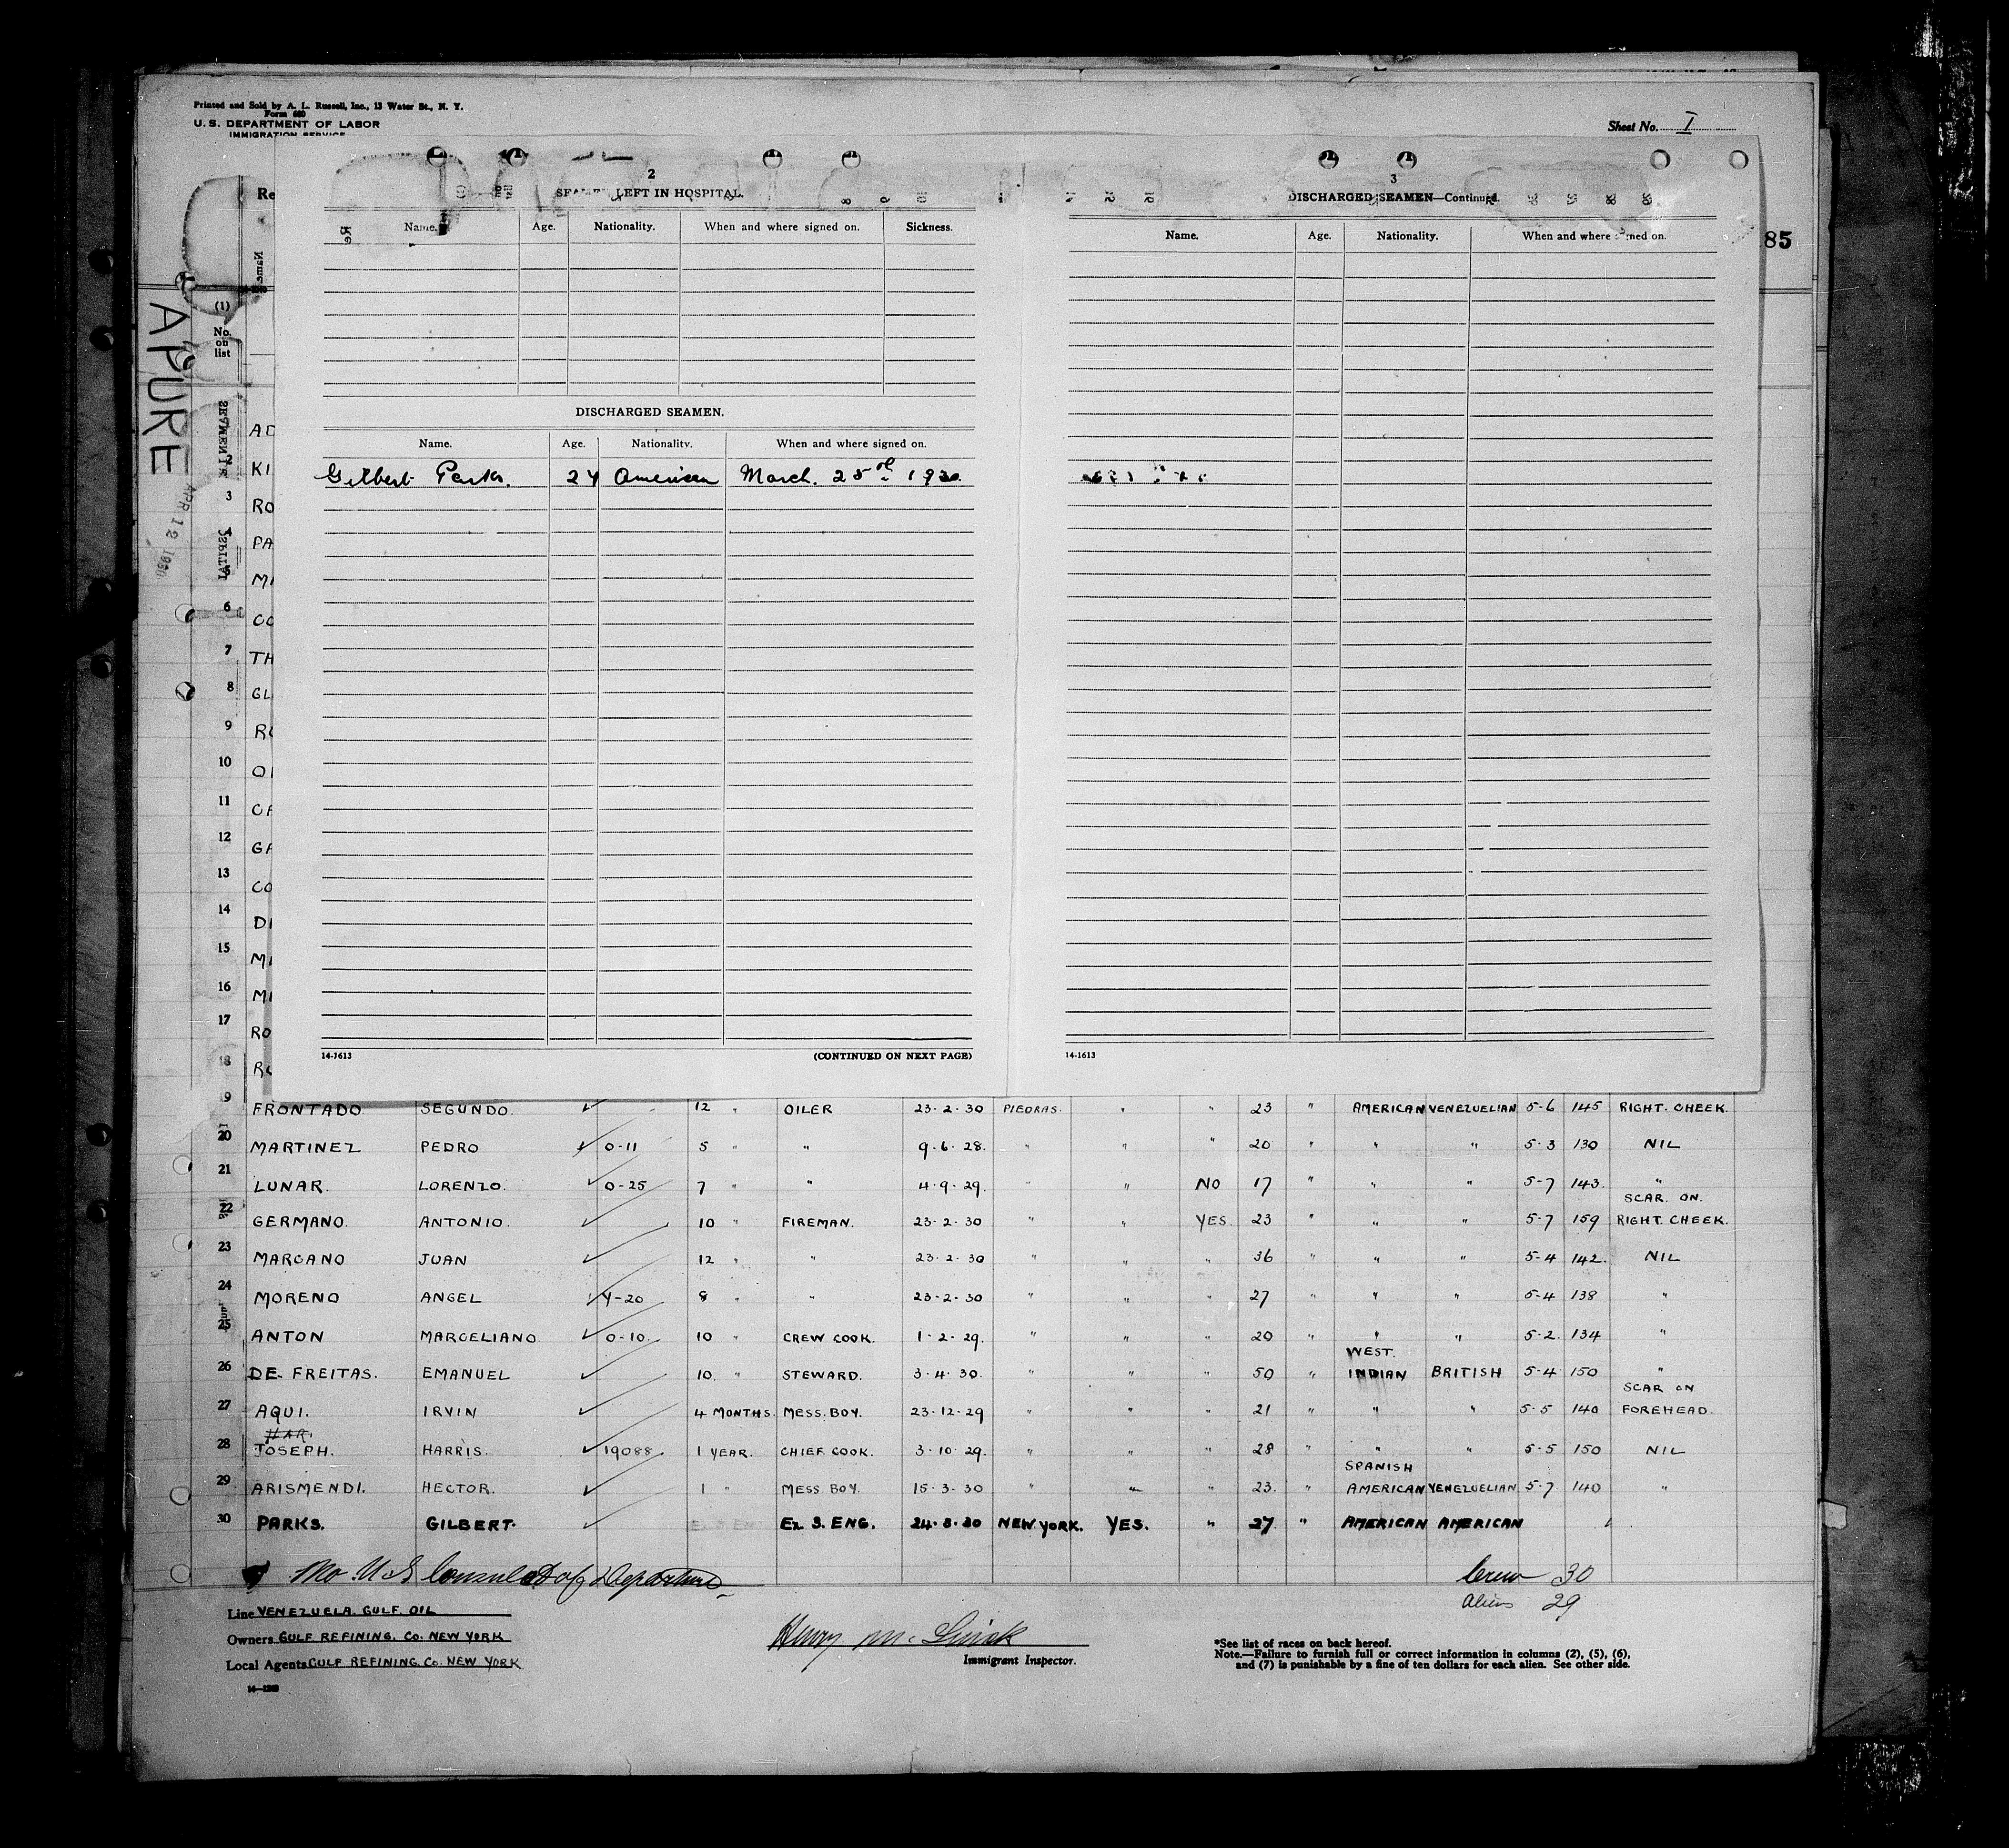 Printed and Sold by A. L. Russell, Inc., 13 Water St., N. Y.
Form 680
U. S. DEPARTMENT OF LABOR
IMMIGRATION SERVICE
Sheet No. I
Re
85
Name
(1)
No. on list
APURE
APR 12 1930
2
SEAMEN LEFT IN HOSPITAL.
Name. Age. Nationality. When and where signed on. Sickness.
DISCHARGED SEAMEN.
Name. Age. Nationality. When and where signed on.
Gilbert Parks. 24 American March. 25th 1930
14-1613 (CONTINUED ON NEXT PAGE)
3
DISCHARGED SEAMEN—Continued.
Name. Age. Nationality. When and where signed on.
14-1613
AD
2 KI
3 RO
4 PA
5 MA
6 CO
7 TH
8 GL
9 RO
10
11 CA
12 GA
13 CO
14 DI
15
16
17 RO
18
19 FRONTADO SEGUNDO. 12 " OILER 23·2·30 PIEDRAS. " " 23 " AMERICAN VENEZUELIAN 5-6 145 RIGHT. CHEEK.
20 MARTINEZ PEDRO 0-11 5 " " 9·6·28. " " " 20 " " " 5-3 130 NIL
21 LUNAR. LORENZO. 0-25 7 " " 4·9·29. " " NO 17 " " " 5-7 143. "
22 GERMANO. ANTONIO. 10 " FIREMAN. 23·2·30 " " YES. 23 " " " 5-7 159 SCAR. ON. RIGHT. CHEEK.
23 MARCANO JUAN 12 " " 23·2·30 " " " 36 " " " 5-4 142. NIL
24 MORENO ANGEL 4-20 8 " " 23·2·30 " " " 27 " " " 5-4 138 "
25 ANTON MARCELIANO. 0-10. 10 " CREW COOK. 1·2·29. " " " 20 " " " 5-2. 134 "
26 DE FREITAS. EMANUEL 10. " STEWARD. 3·4·30. " " " 50 " WEST. INDIAN BRITISH 5-4 150 "
27 AQUI. IRVIN 4 MONTHS. MESS. BOY. 23·12·29 " " " 21 " " " 5-5 140 SCAR ON FOREHEAD.
HAR.
28 JOSEPH. HARRIS. 19088 1 YEAR. CHIEF. COOK. 3·10·29. " " " 28 " " " 5-5 150 NIL
29 ARISMENDI. HECTOR. 1 " MESS. BOY. 15·3·30 " " " 23. " SPANISH AMERICAN VENEZUELIAN 5-7 140 "
30 PARKS. GILBERT. Ex 3. ENG. 24·3·30 NEW YORK. YES. " 27. " AMERICAN AMERICAN
No U S Consulate of Departure
Crew 30
Aliens 29
Line VENEZUELA. GULF. OIL
Owners GULF REFINING. Co. NEW YORK
Local Agents GULF REFINING. Co. NEW YORK
Immigrant Inspector.
*See list of races on back hereof.
Note.—Failure to furnish full or correct information in columns (2), (5), (6),
and (7) is punishable by a fine of ten dollars for each alien. See other side.